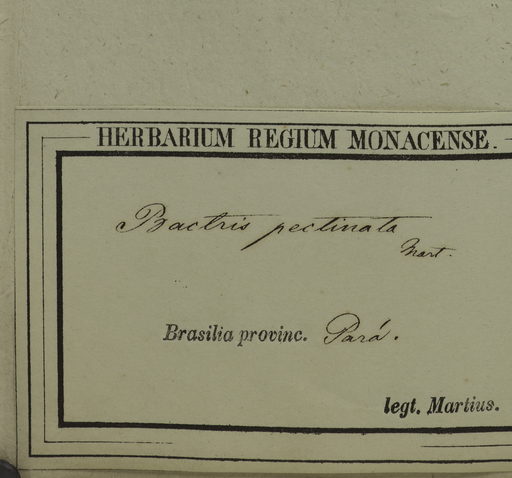 HERBARIUM REGIUM MONACENSE.
Bactris pectinata
Mart.
Brasilia provinc. Pará.
legt. Martius.